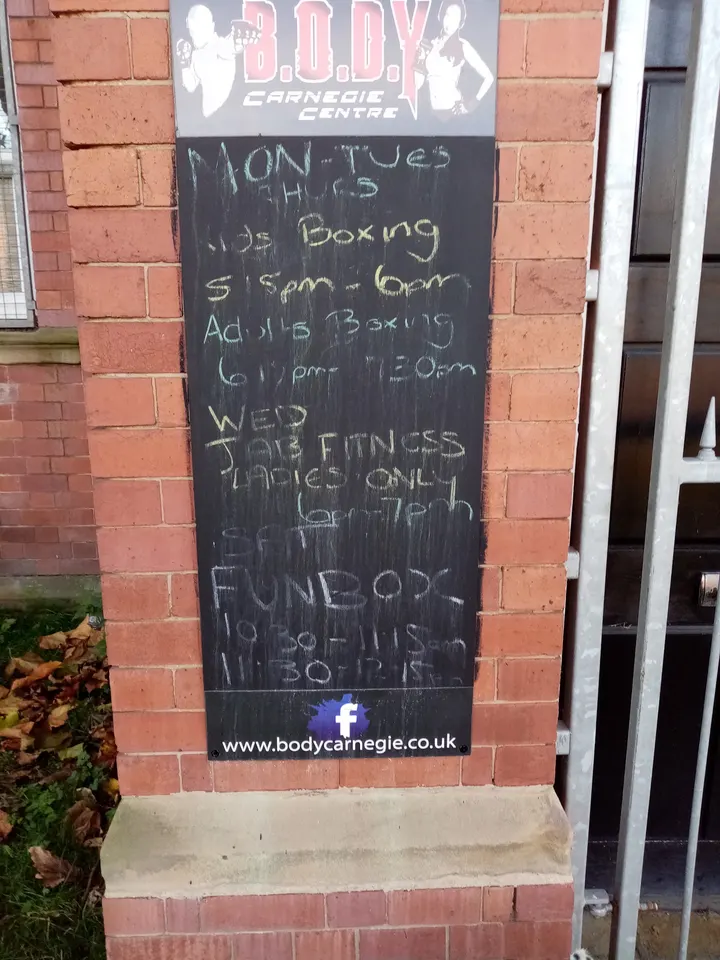 B.O.D.Y
CARNEGIE
CENTRE
MON-TUES
Boxing
5 15pm - 6pm
Adults Boxing
730pm
WED
JAB FITNESS
LADIES ONLY
6pm-7pm
SAT
FUNBOX
10 30 - 11 15am
11 30 - 12-15
f
www.bodycarnegie.co.uk